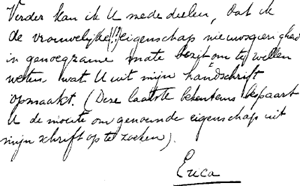 Verder kan ik U mededeelen, dat ik
de vrouwelijke!!! eigenschap nieuwsgierigheid
in genoegzame mate bezit om te willen
weten, wat U uit mijn handschrift
opmaakt. (Deze laatste bekentenis bespaart
U de moeite om genoemde eigenschap uit
mijn schrift op te zoeken).
Erica